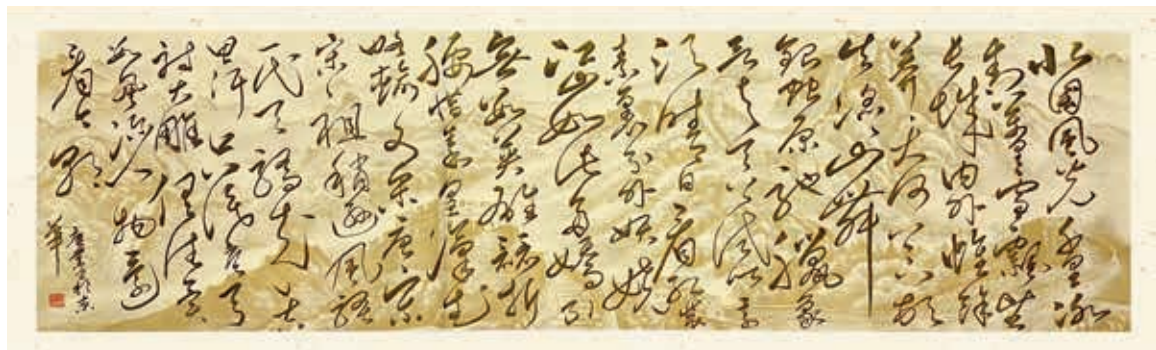 北国風光千里冰
封萬里雪飄望
長城内外惟餘
莽莽大河上下頓
失滔滔山舞
銀蛇原馳蠟象
欲與天公試比高
須晴日看紅裝
素裹分外妖嬈
江山如此多嬌引
無數英雄競折
腰惜秦皇漢武
略輸文采唐宗
宋祖稍遜風騷
一代天驕成吉
思汗只識彎弓
射大雕俱往矣
數風流人物還
看今朝